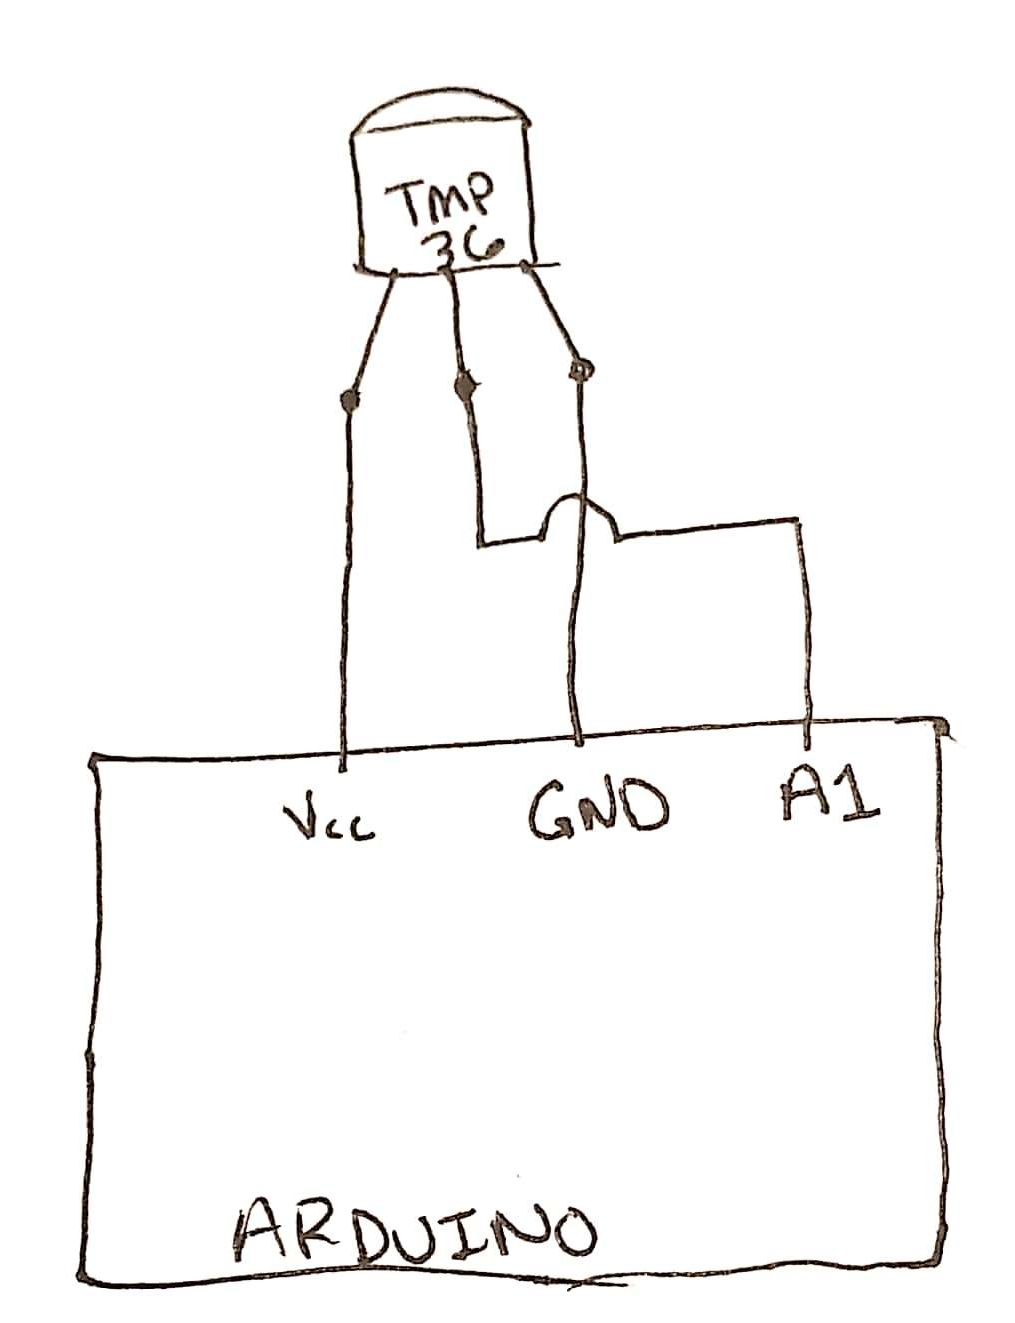 TMP
36
Vcc GND A1
ARDUINO